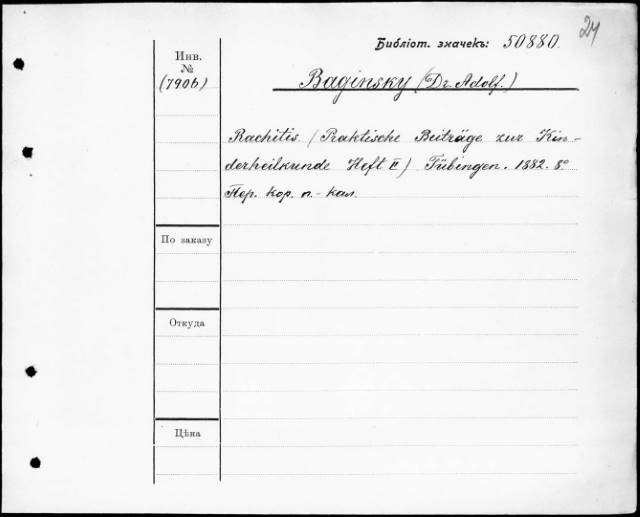 24
Библіот. значекъ: 50880.
Инв.
№
(7906)
Baginsky (Dr. Adolf.)
Rachitis. (Praktische Beiträge zur Kin-
derheilkunde Heft II) Tübingen. 1882. 8°
Пер. кор. п.-кал.
По заказу
Откуда
Цѣна